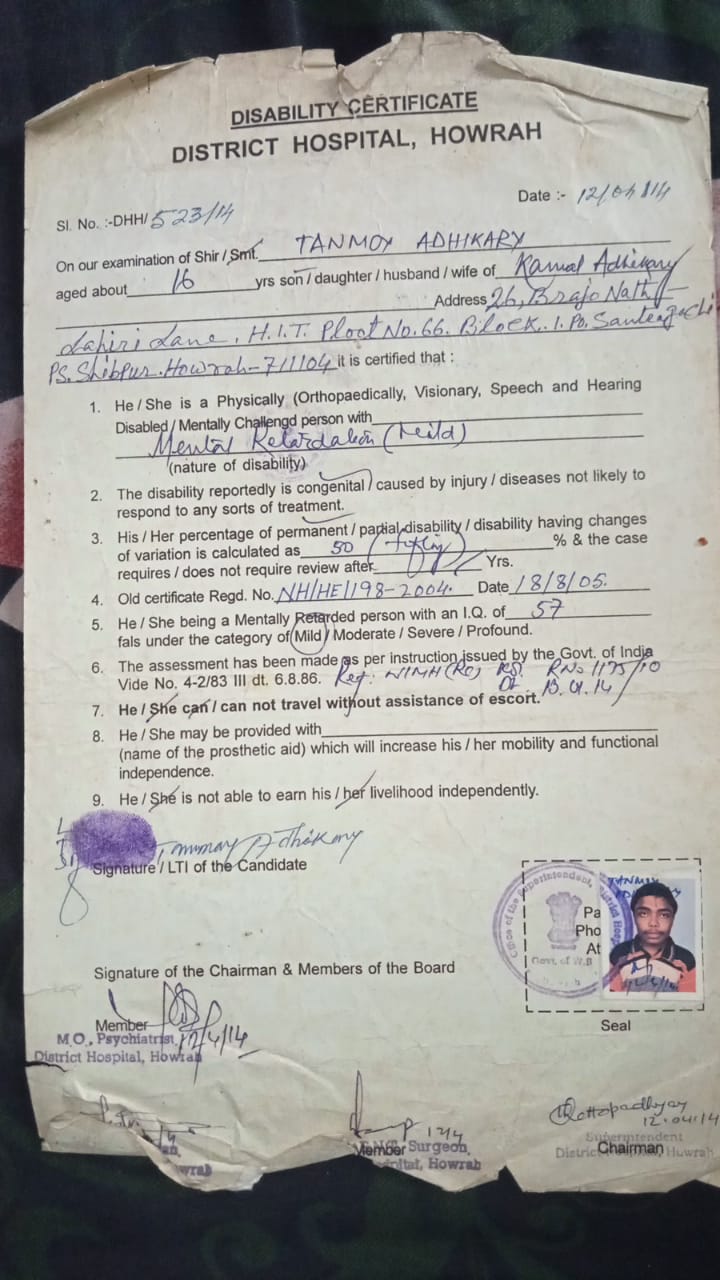 DISABILITY CERTIFICATE
DISTRICT HOSPITAL, HOWRAH
Sl. No. :-DHH/ 523/14
Date :- 12/04/14
On our examination of Shir / Smt. TANMOY ADHIKARY
aged about 16 yrs son / daughter / husband / wife of Kamal Adhikary
Address 26, Brajo Nath
Lahiri Lane, H.I.T. Ploot No. 66. Block. 1. Po. Santragachi
PS. Shibpur. Howrah-711104 it is certified that :
1. He / She is a Physically (Orthopaedically, Visionary, Speech and Hearing
Disabled / Mentally Challengd person with
Mental Retardation (Mild)
(nature of disability)
2. The disability reportedly is congenital / caused by injury / diseases not likely to
respond to any sorts of treatment.
3. His / Her percentage of permanent / partial disability / disability having changes
of variation is calculated as 50 ( ) % & the case
requires / does not require review after Yrs.
4. Old certificate Regd. No. NH/HE/198-2004. Date 18/8/05.
5. He / She being a Mentally Retarded person with an I.Q. of 57
fals under the category of Mild / Moderate / Severe / Profound.
6. The assessment has been made as per instruction issued by the Govt. of India
Vide No. 4-2/83 III dt. 6.8.86. Ref: NIMH (RC) RNo 1175/10
Dt. 13.01.14
7. He / She can / can not travel without assistance of escort.
8. He / She may be provided with
(name of the prosthetic aid) which will increase his / her mobility and functional
independence.
9. He / She is not able to earn his / her livelihood independently.
Tanmay Adhikary
Signature / LTI of the Candidate
Office of the Superintendent, District Hos
Govt. of W.B
Pa
Pho
At
TANMOY
Signature of the Chairman & Members of the Board
Seal
Member
12/4/14
M.O., Psychiatrist
District Hospital, Howrah
Chattopadhyay
12.04.14
Member Surgeon,
Howrah
Superintendent
Chairman
District Howrah